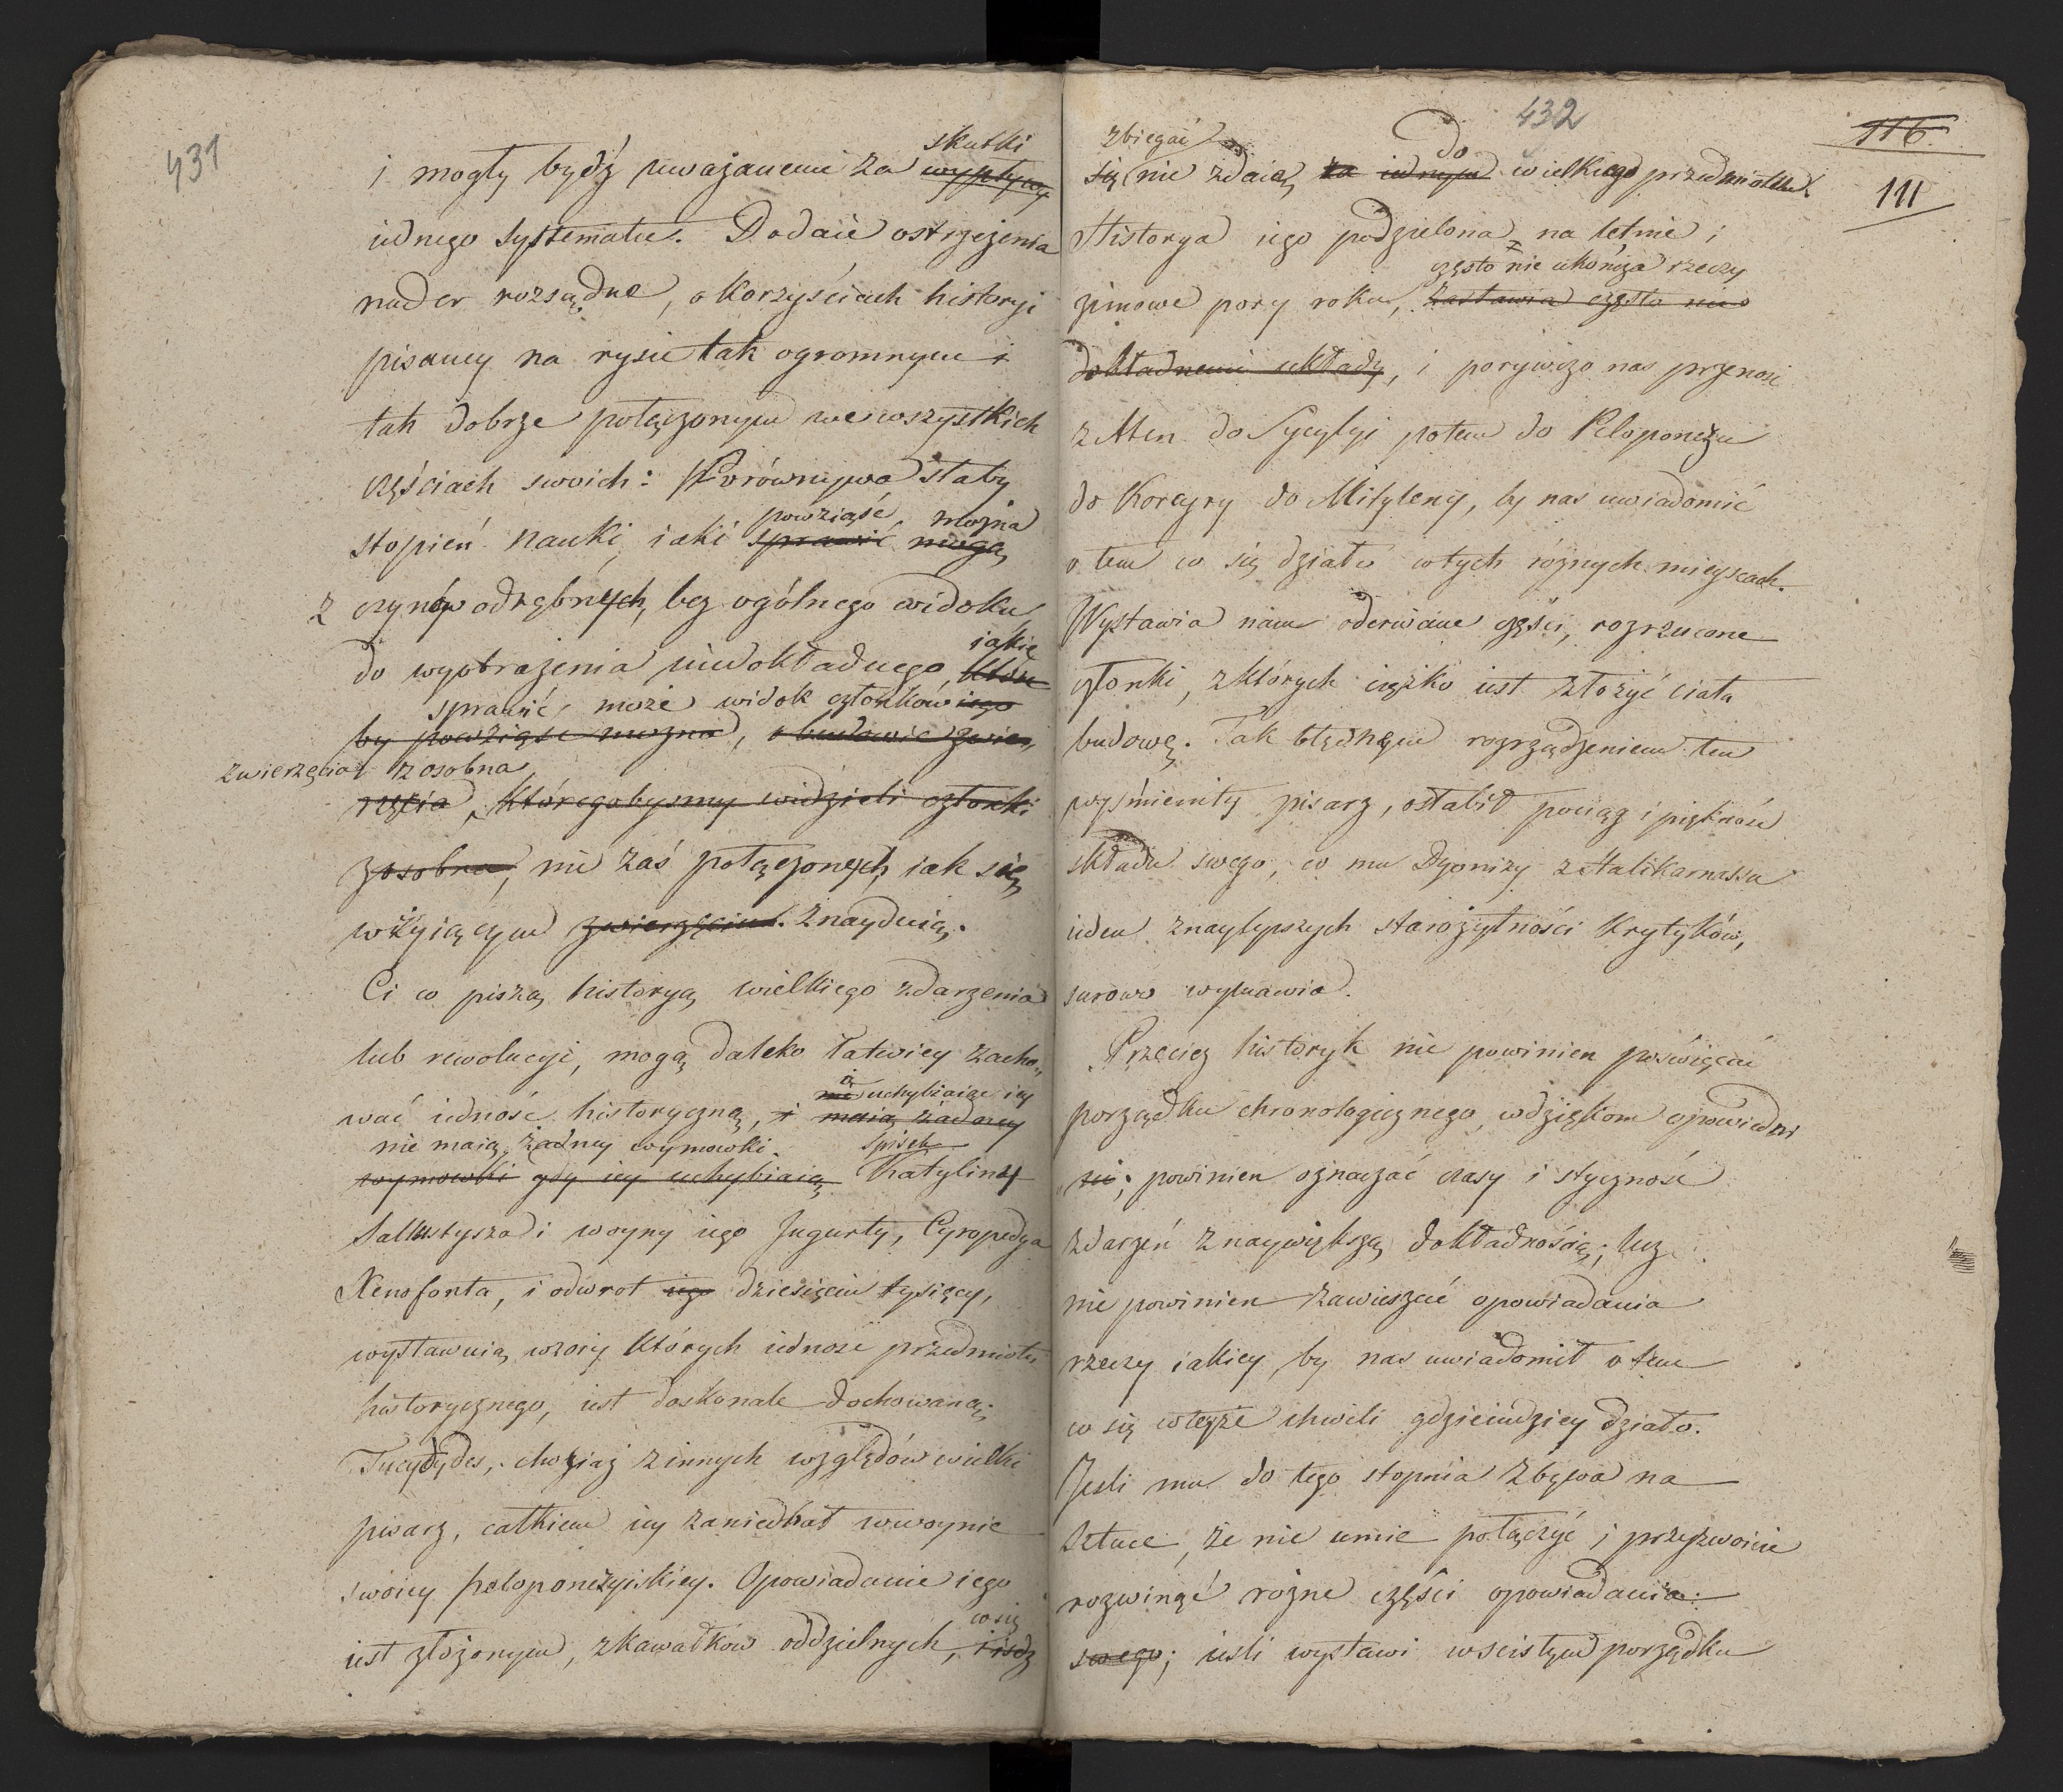 431
skutki
i mogły bydź uważanemi za wypływy
iednego systematu. Dodaie ostrzeżenia
nader rozsądne, o korzyściach historyi
pisaney na rysie tak ogromnym i
tak dobrze połączonym we wszystkich
częściach swoich: Porównywa słaby
powziąść można
stopień nauki, iaki sprawić mogą
z czynów odrębnych, bez ogólnego widoku
iakie
do wyobrażenia niedokładnego, które
sprawić może widok członków iego
by powziąść można, o budowie zwie„
zwierzęcia z osobna
rzęcia, któregobysmy widzieli członki
zosobna, nie zaś połączonych, iak się
w żyiącym zwierzęciu. znayduią.
Ci co piszą historyą wielkiego zdarzenia
lub rewolucyi, mogą daleko łatwiey zacho„
uchybiaiąc iey
wać iedność historyczną, i maią żadney
nie maią żadney wymowki. Spisek
wymowki gdy iey uchybiaią Katyliny
Sallustyusza i woyny iego Jugurty, Cyropedya
Xenofonta, i odwrot iego dziesięciu tysięcy,
wystawuią wzory których iednosc przedmiotu
historycznego, iest doskonale dochowaną;
Tucydydes, choziaż z innych względów wielki
pisarz, całkiem iey zaniedbał w woynie
swoiey peloponezyiskiey. Opowiadanie iego
co się
iest złożonym, z kawałków oddzielnych,
432
116
111
zbiegać do
się nie zdaią za iednego wielkiego przedmiotu.
Historya iego podzielona na letnie i
często nie ukończa rzeczy
zimowe pory roku, zostawia często nie
dokładnemi układy, i porywczo nas przenosi
z Aten do Sycylyi potem do Peloponezu
do Korcyry do Mityleny, by nas uwiadomić
o tem co się działo w tych różnych mieyscach.
Wystawia nam oderwane części, rozrzucone
członki, z których ciężko iest złożyć ciała
budowę. Tak błędnym rozrządzeniem ten
wyśmienity pisarz, osłabił pociąg i piękność
składu swego, co mu Dyonizy z Halikarnassu
ieden z naylepszych starożytności krytyków,
surowo wymawia.
Przecież historyk nie powinien poświęcać
porządku chronologicznego, wdziękom opowiedni
powinien oznaczać czasy i styczność
zdarzeń z naywiększą dokładnością; lecz
nie powinien zawieszać opowiadania
rzeczy iakiey, by nas uwiadomił o tem
co się w teyże chwili gdzieindziey działo.
Jesli mu do tego stopnia zbywa na
sztuce, że nie umie połączyć i przyzwoicie
rozwinąć rożne części opowiadania
swego; iesli wystawi w scisłym porządku